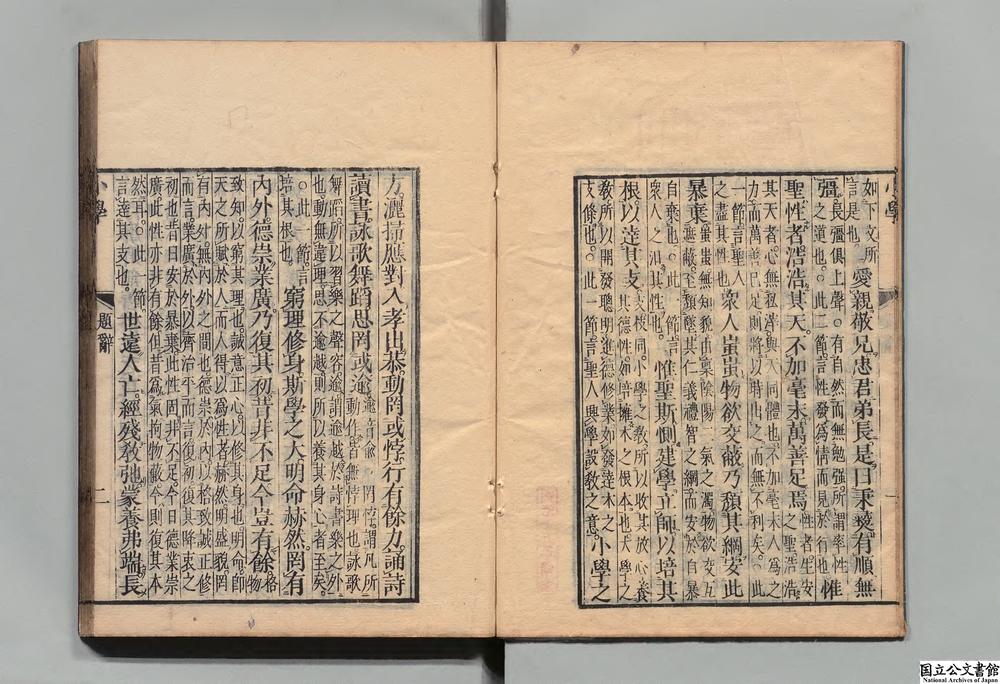 小學
如下文所言是也。愛親敬兄忠君弟長是曰秉彝有順無
彊長彊俱上聲。○有自然而無勉強所謂率性之道也。○此二節言性發爲情而見於行也惟
聖性者浩浩其天不加毫末萬善足焉性者生安之聖浩浩
其天者心無私滓與天同體也不加毫末人爲之力而萬善已足則將以時出之而無不利矣。○此
一節言聖人之盡其性也衆人蚩蚩物欲交蔽乃頹其綱安此
暴棄蚩蚩無知貌由稟陰陽二氣之濁物欲交互遮蔽至頹墜其仁義禮智之綱而安於自暴
自棄也。○此一節言衆人之汩其性也惟聖斯惻建學立師以培其
根以達其支支枝同。小學之敎所以收其放心養其德性如培擁木之根本也大學之
敎所以開發聰明進德修業如發達木之支條也。○此一節言聖人興學設敎之意。小學之
方灑掃應對入孝出恭動罔或悖行有餘力誦詩
讀書詠歌舞蹈思罔或逾逾音俞謂凡所動作皆無悖理也詠歌
舞蹈所以習樂之聲容逾謂逾越於詩書樂之外也動無違理思不逾越則所以養其身心者至矣
。○此一節言培其根也。窮理修身斯學之大明命赫然罔有
內外德崇業廣乃復其初昔非不足今豈有餘格物
致知以窮其理也誠意正心以修其身也明命即天之所賦於人而人得以爲性者赫然明盛貌罔
有內外無內外之間也德崇於內以格致誠正修而言業廣於外以齊治平而言復初復其降衷之
初也昔日安於暴棄此性固非不足今日德業崇廣此性亦非有餘但昔爲氣拘物蔽今則復其本
然耳。○此一節言達其支也。世遠人亡經殘敎弛蒙養弗端長
小學 題辭 二
国立公文書館
National Archives of Japan